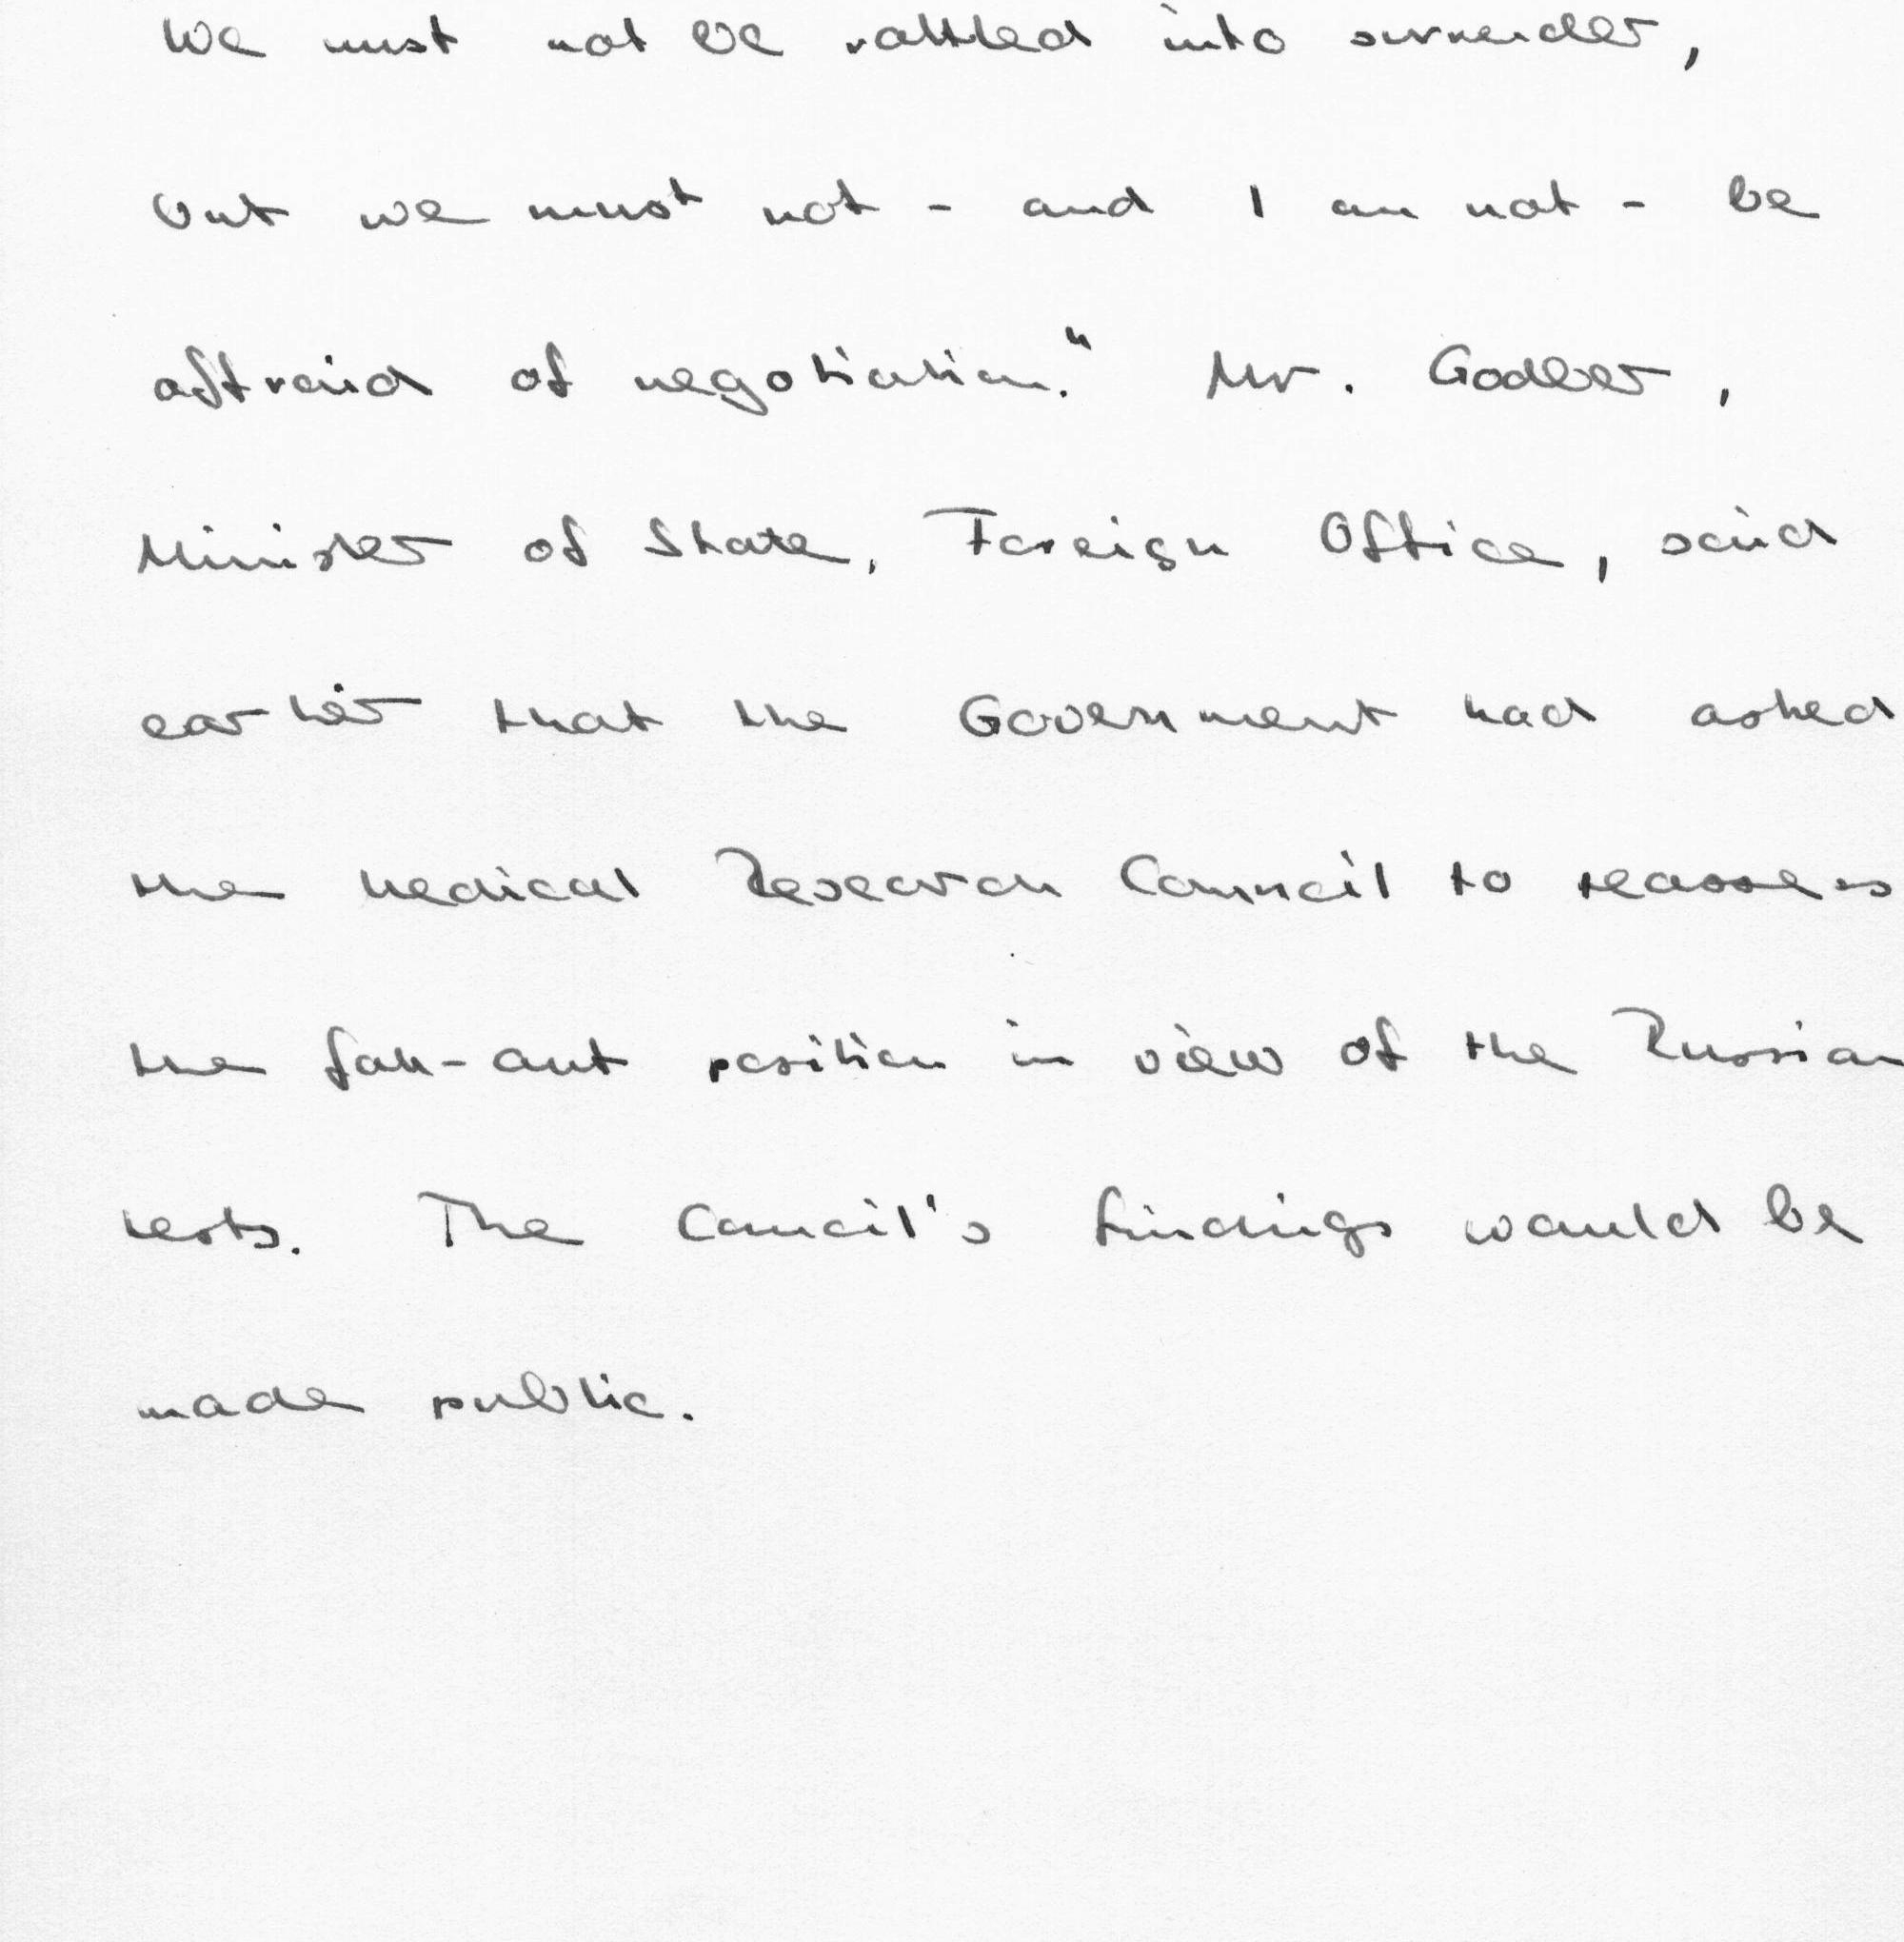 We must not be rattled into surrender,
but we must not - and I am not - be
afraid of negotiation." Mr. Godber,
Minister of State, Foreign Office, said
earlier that the Government had asked
the Medical Research Council to reassess
the fall-out position in view of the Russian
tests. The Council's findings would be
made public.